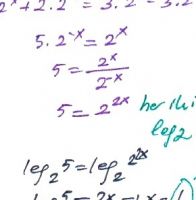 2ˣ + 2.2 = 3.2 - 3.2
5.2⁻ˣ = 2ˣ
5 = 2ˣ / 2⁻ˣ
5 = 2²ˣ her iki
log2
log₂5 = log₂2²ˣ
log₂5 = 2x